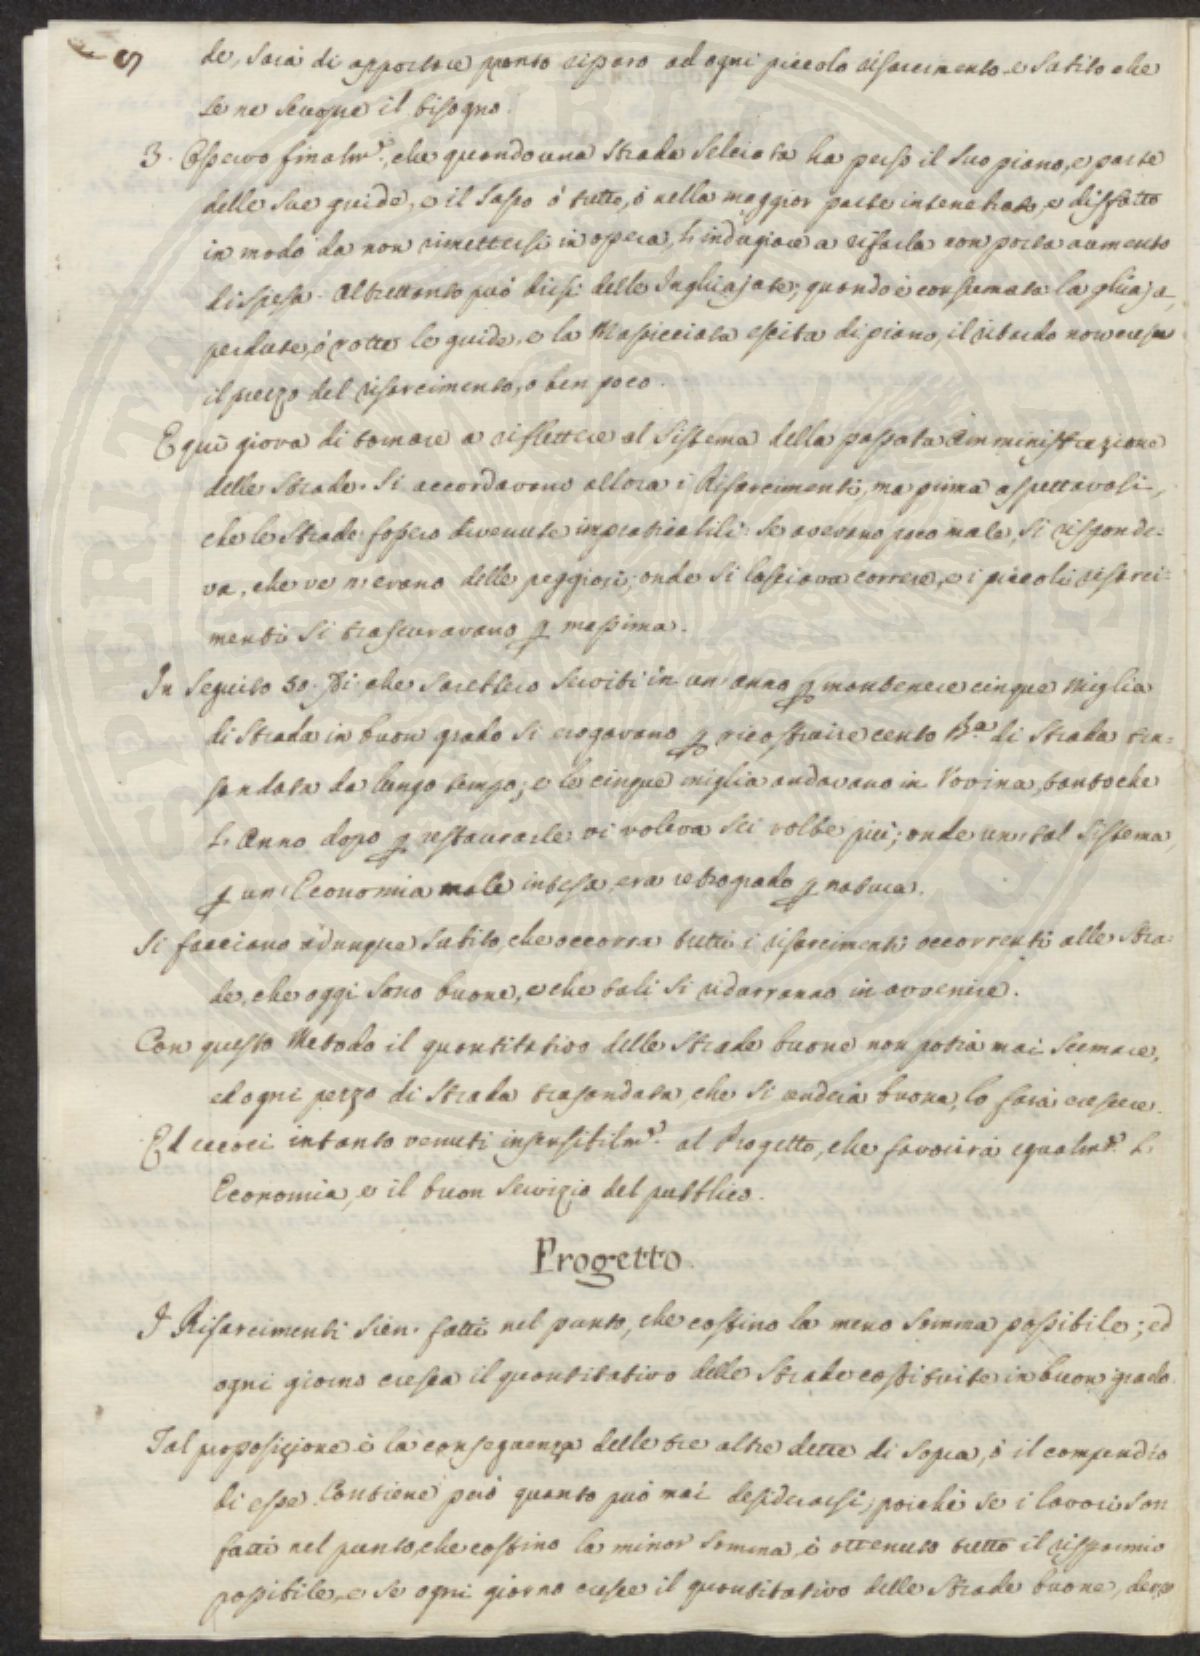 5
de, sarà di apportare pronto riparo ad ogni piccolo risarcimento, e subito che
se ne scuopra il bisogno.
3. Osservo finalm.e, che quando una Strada Selciata ha perso il suo piano, e parte
delle sue guide, e il Sasso ò tutto, ò nella maggior parte intenebrato, e disfatto
in modo da non rimettersi in opera, l'indugiare a rifarla non porta aumento
di spesa. Altrettanto può dirsi delle Inghiajate; quando è consumata la ghiaja,
perdute, ò rotte le guide, e la Massicciata escita di piano, il ritardo non cresce
il prezzo del risarcimento, o ben poco.
E quì giova di tornare a riflettere al Sistema della passata Amministrazione
delle Strade. Si accordavano allora i Risarcimenti, ma prima aspettavasi,
che le Strade fossero divenute impraticabili: se avevano poco male, si risponde-
va, che ve n'erano delle peggiori; onde si lasciava correre, e i piccoli risarci=
menti si trascuravano p massima.
In seguito 50. che sarebbero serviti in un'anno p mantenere cinque Miglia
di Strada in buon grado si erogavano p ricostruire cento B.a di Strada tra=
sandata da lungo tempo; e le cinque miglia andavano in Rovina, tantoche
l'Anno dopo p restaurarle vi voleva sei volte più; onde un tal Sistema,
p un'Economia male intesa, era retrogrado p natura.
Si facciano adunque subito, che occorra tutti i risarcimenti occorrenti alle Stra=
de, che oggi sono buone, e che tali si ridurranno in avvenire.
Con questo Metodo il quantitativo delle Strade buone non potrà mai scemare,
ed ogni pezzo di Strada trasandata, che si renderà buona, lo farà crescere.
Ed eccoci intanto venuti insensibilm.e al Progetto, che favorirà egualm.e l'
Economia, e il buon servizio del pubblico.
Progetto.
I Risarcimenti sien fatti nel punto, che costino la meno somma possibile; ed
ogni giorno cresca il quantitativo delle Strade costituite in buon grado.
Tal proposizione è la conseguenza delle tre altre dette di sopra, ò il compendio
di esse. Contiene però quanto può mai desiderarsi; poichè se i lavori son
fatti nel punto, che costino la minor somma, è ottenuto tutto il risparmio
possibile, e se ogni giorno cresce il quantitativo delle Strade buone, deve